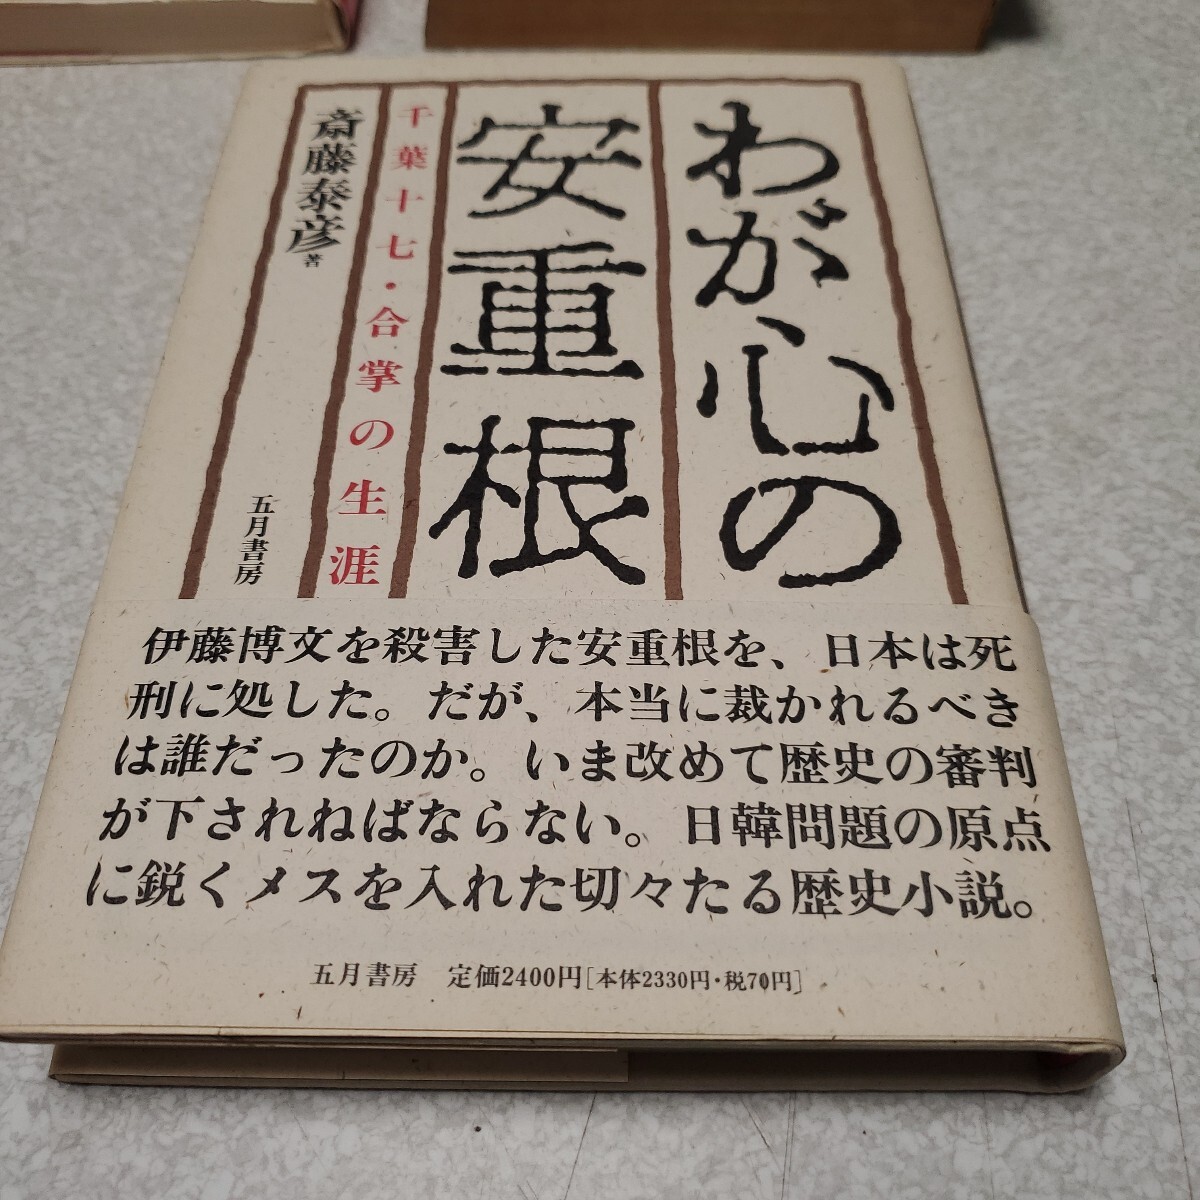 わが心の
安重根
千葉十七・合掌の生涯
斎藤泰彦 著
五月書房
伊藤博文を殺害した安重根を、日本は死
刑に処した。だが、本当に裁かれるべき
は誰だったのか。いま改めて歴史の審判
が下されねばならない。日韓問題の原点
に鋭くメスを入れた切々たる歴史小説。
五月書房 定価2400円[本体2330円・税70円]